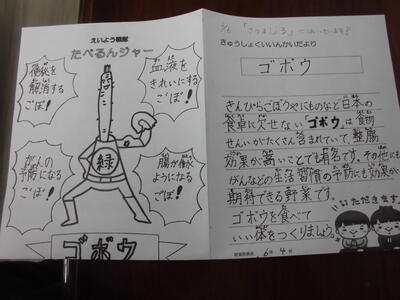 えいよう戦隊
たべるんジャー
便秘を
解消する
ごぼ!
血液を
きれいにする
ごぼ!
がんの
予防になる
ごぼ!
腸が働く
ようになる
ごぼ!
緑
ゴボウ
2/6 「さつまじる」にはいっています!
きゅうしょくいいんかいだより
ゴボウ
きんぴらごぼうやにものなど日本の
食卓に欠せない「ゴボウ」は食物
せんいがたくさん含まれていて、整腸
効果が高いことでも有名です。その他にも
がんなどの生活習慣の予防にも効果が
期待できる野菜です。
ゴボウを食べて
いい体をつくりましょう。
いただきます
給食委員会 6年4組